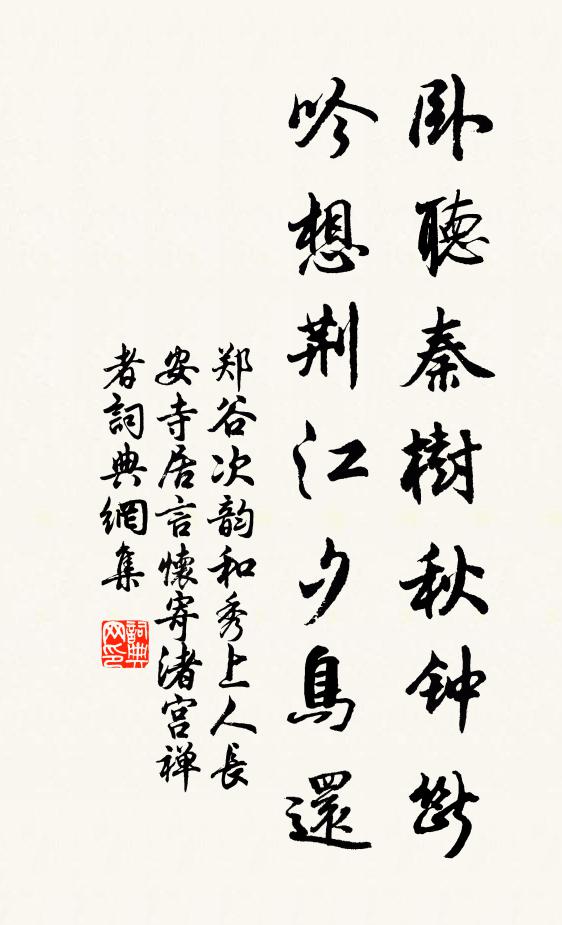 卧聽秦樹秋钟斷
吟想荆江夕鳥還
郑谷次韵和秀上人長
安寺居言懷寄渚宫禅
者詞典網集
詞典
网印